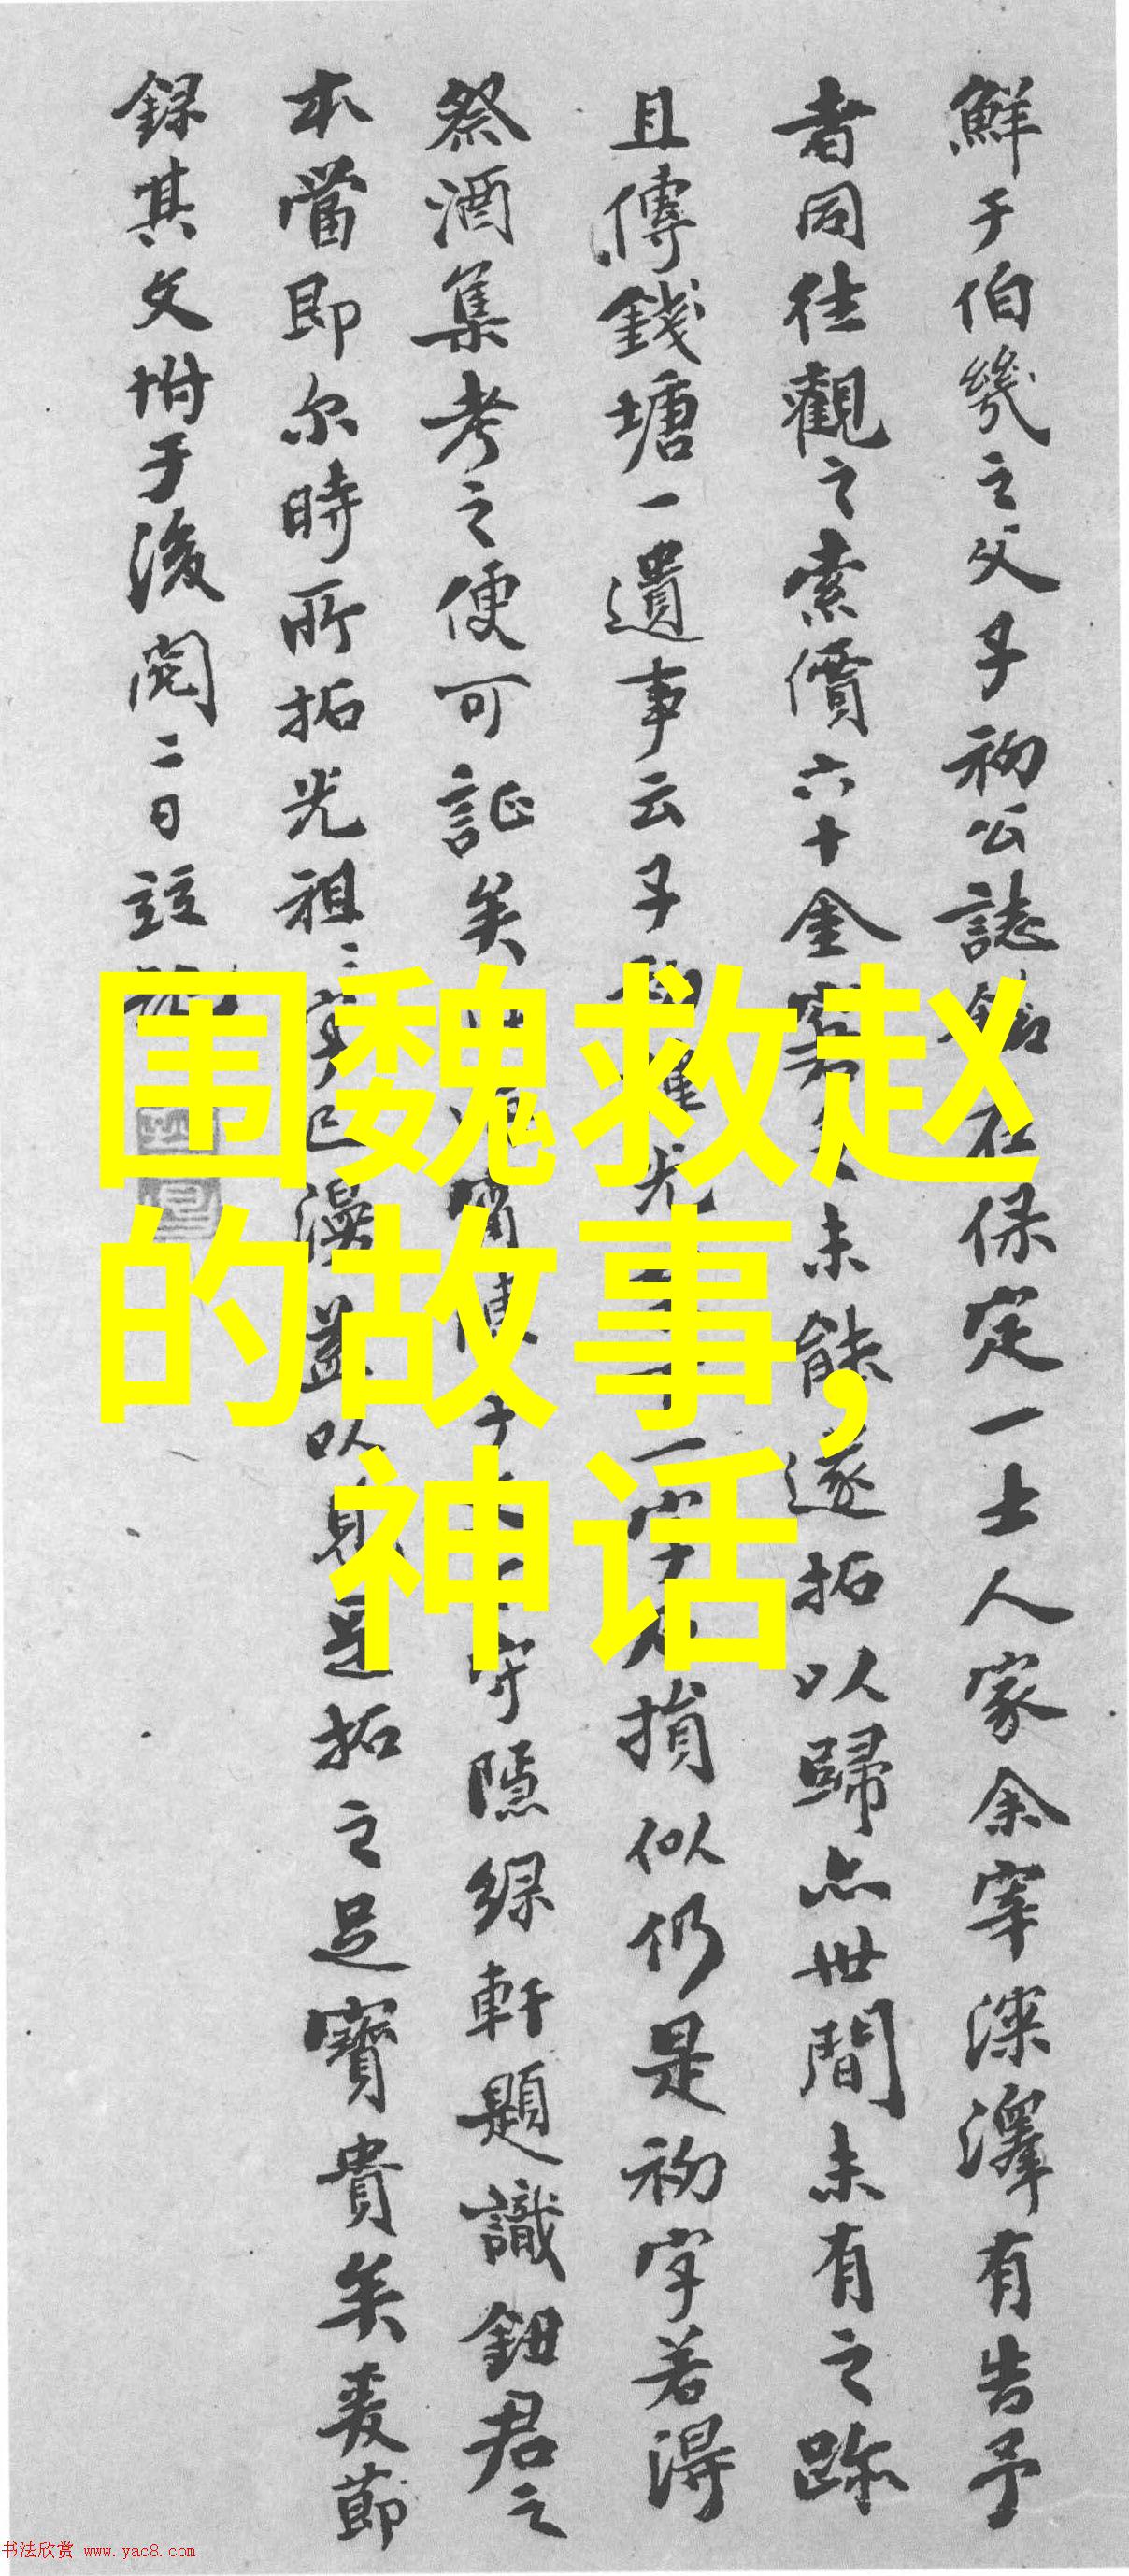 围魏救赵
的故事，
神话
鮮于伯幾之父子初公誌在保定一士人家余宰深澤有告予
者同往觀之索價六十金未能遂拓以歸亦世間未有之跡
且傳錢塘一遺事云子一字損似仍是初字若得
祭酒集考之便可証矣守隱綠軒題識鈕君之
本當即尔時所拓光祖二字已漫蓋以是拓之足寶貴矣爰節
録其文坿于後閏二日
书法欣赏 www.yac8.com